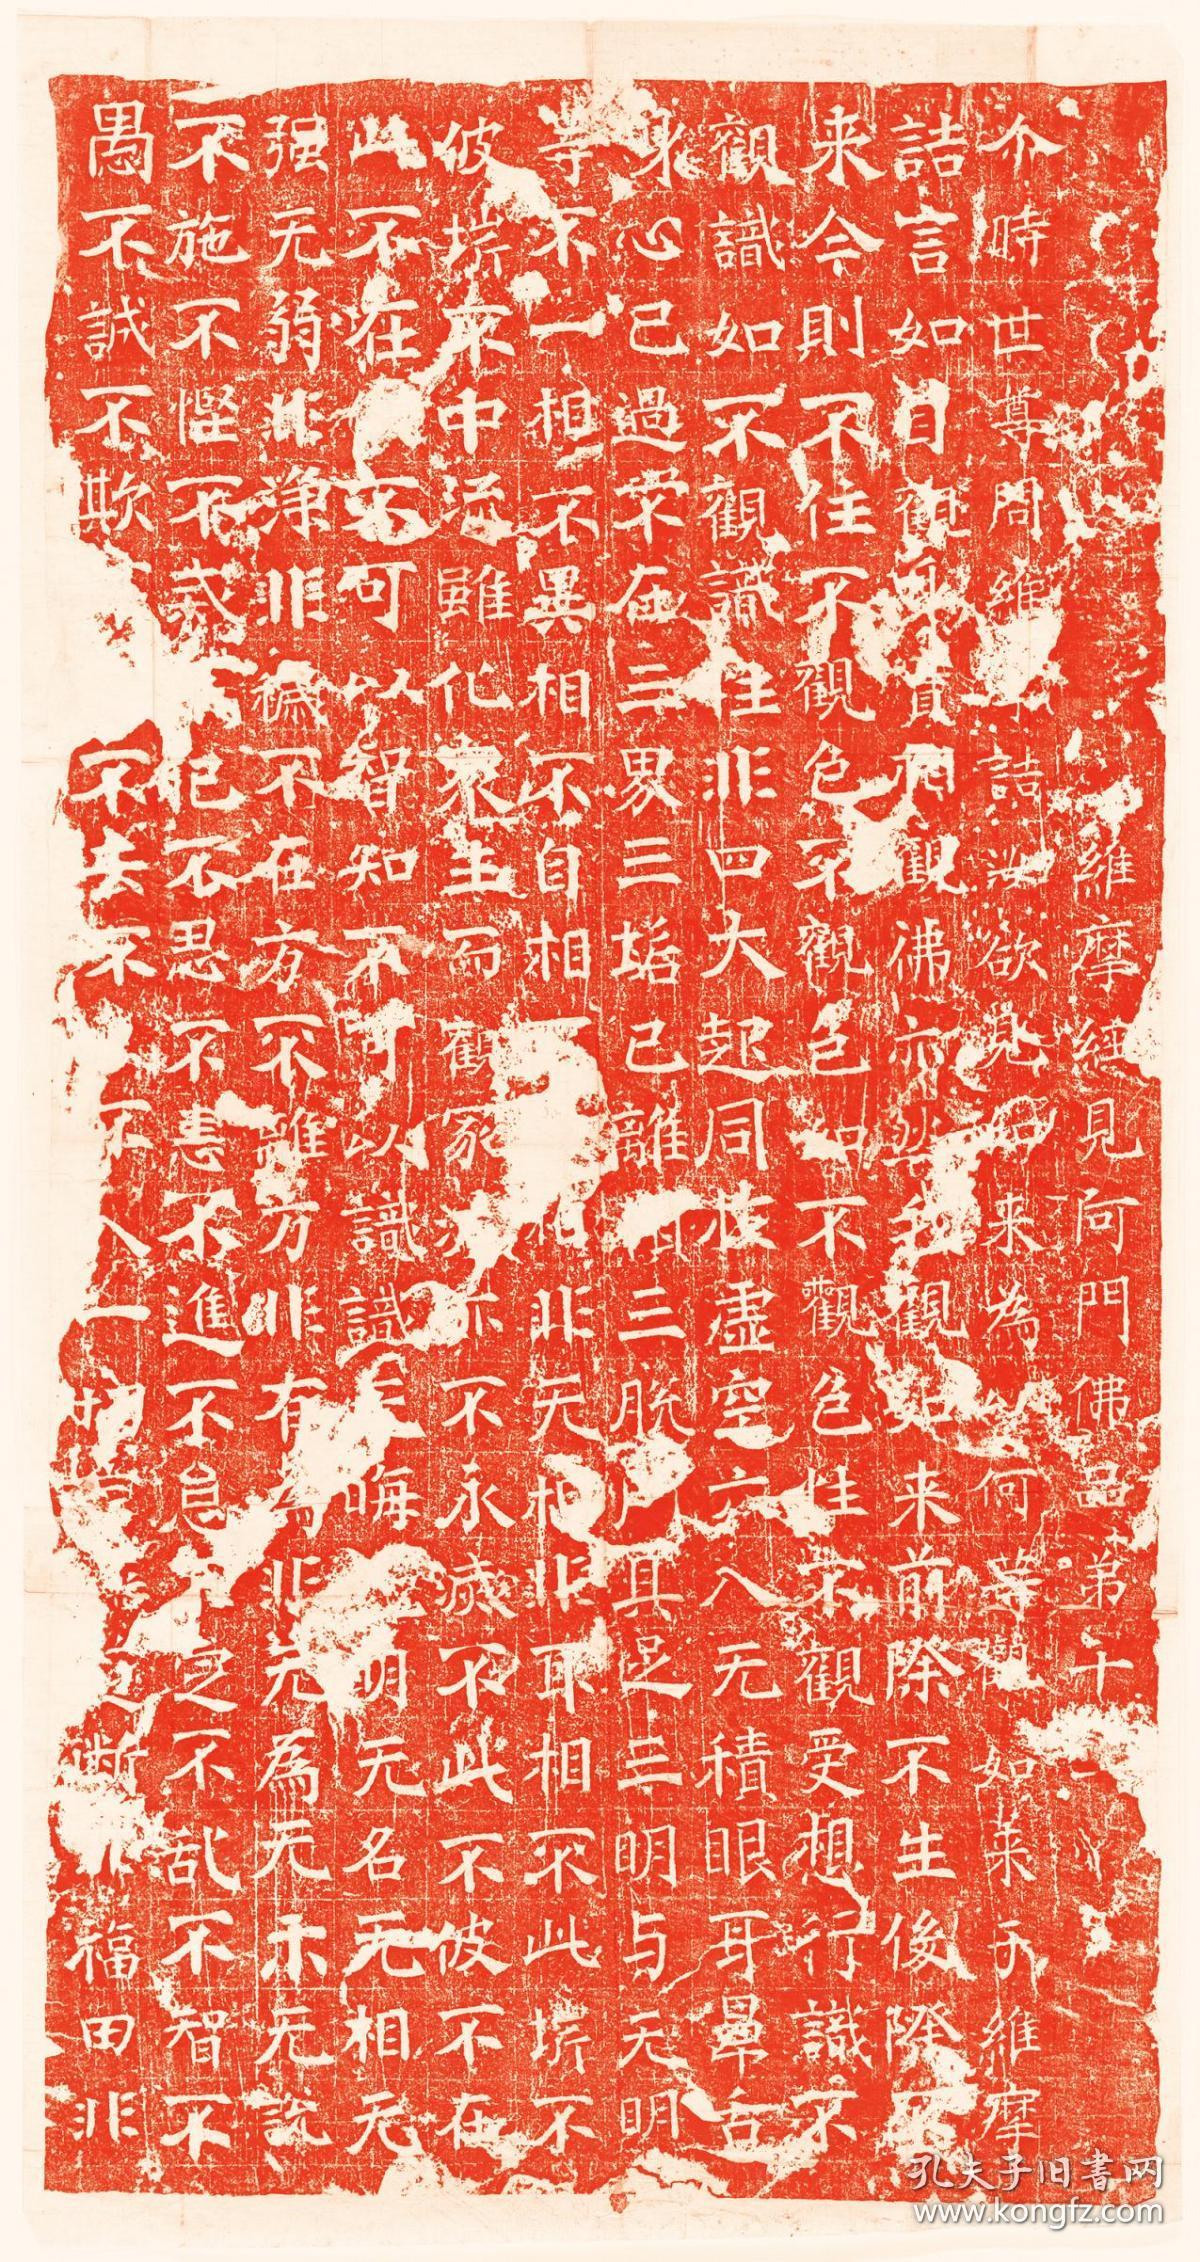 維摩經見阿門佛品弟十二
尒時世尊問維摩詰汝欲見如来為以何等觀如来乎維摩
詰言如自觀身實相觀佛亦然我觀如来前際不生後際不
来今則不住不觀色不觀色如不觀色性不觀受想行識不
觀識如不觀識性非四大起同於虛空六入无積眼耳鼻舌
身心已過不在三界三垢已離順三脱門具足三明与无明
等不一相不異相不自相不他相非无相非取相不此岸不
彼岸不中流雖化衆生而觀寂滅亦不永滅不此不彼不在
此不在彼不可以智知不可以識識无晦无明无名无相无
强无弱非淨非穢不在方不離方非有為非无為无示无説
不施不慳不戒犯不忍不恚不進不怠不之不乱不智不
愚不誠不欺不去不不入一切言道断非福田非
孔夫子旧書网
www.kongfz.com